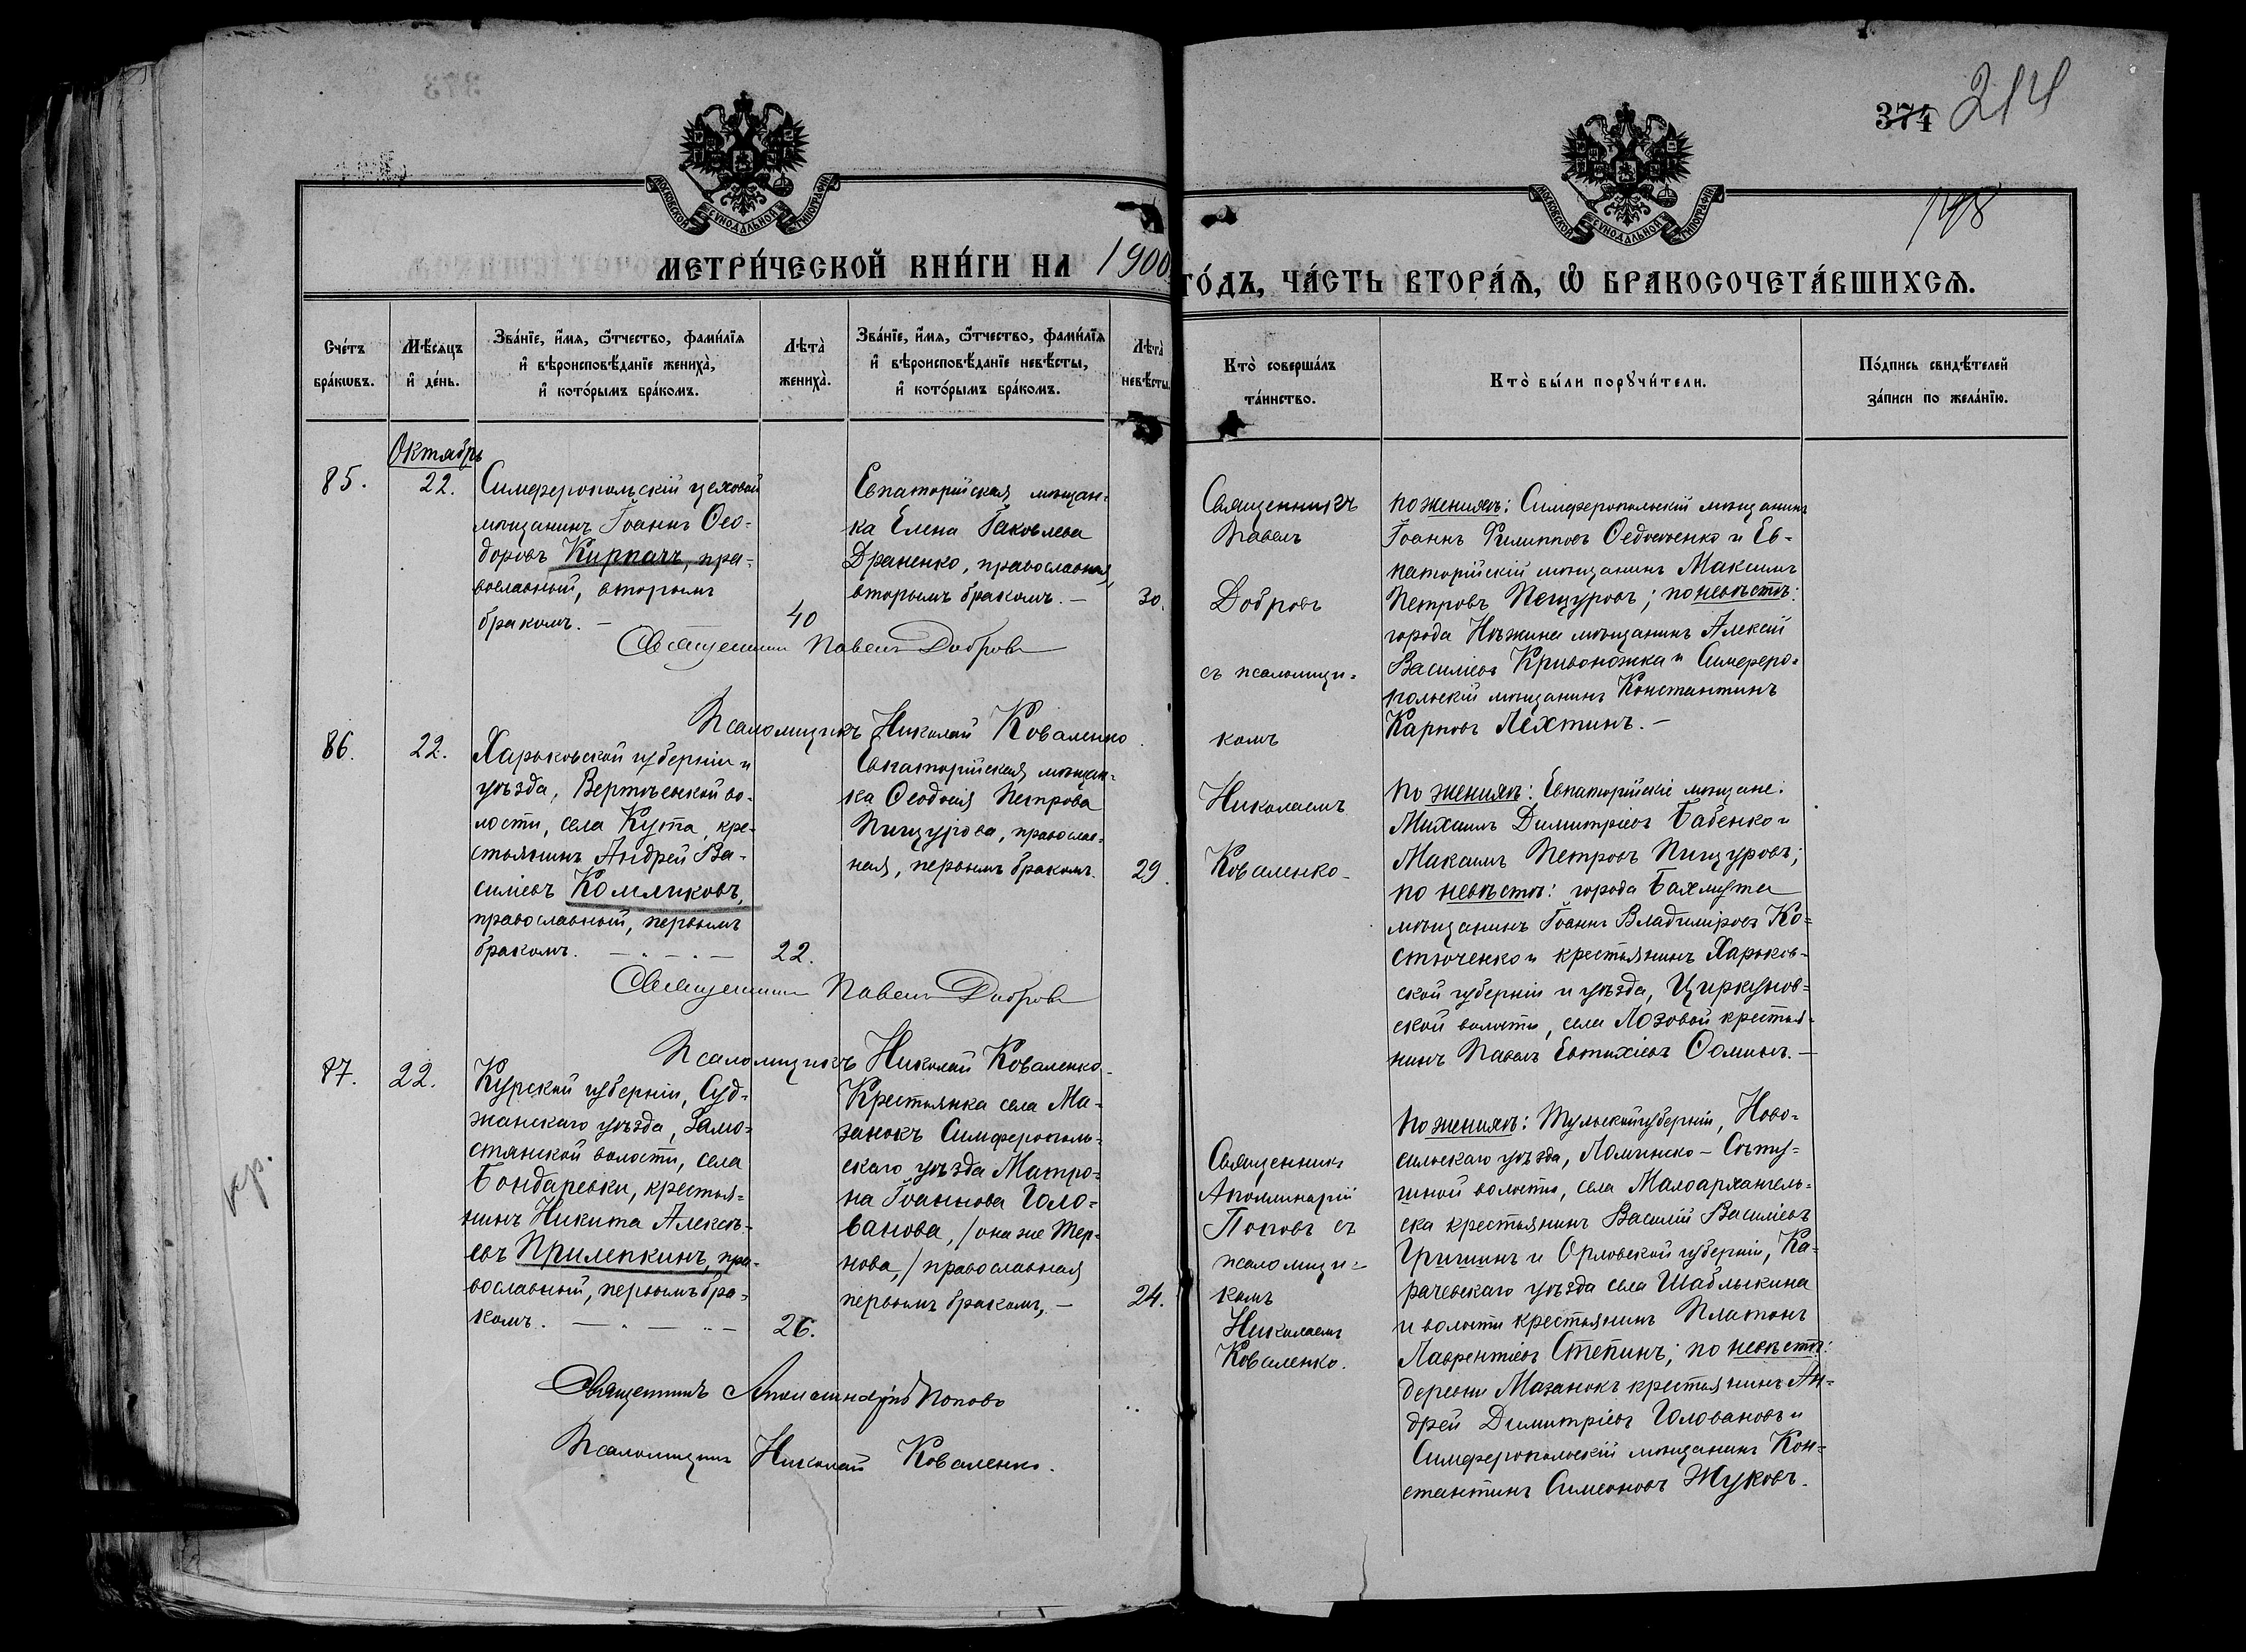 374 214
198
МОСКОВСКОЙ СѴНОДАЛЬНОЙ ТИПОГРАФІИ
МОСКОВСКОЙ СѴНОДАЛЬНОЙ ТИПОГРАФІИ
МЕТРИ́ЧЕСКОЙ КНИ́ГИ НА 1900
ГО́ДЪ, ЧА́СТЬ ВТОРА́Ѧ, Ѽ БРАКОСОЧЕТА́ВШИХСѦ.
Сче́тъ
бра́кѡвъ.
Мѣ́сяцъ
и҆ де́нь.
Зва́нїе, и҆́мя, ѻ҆́тчество, фами́лїя
и҆ вѣроисповѣ́данїе жениха̀,
и҆ кото́рымъ бра́комъ.
Лѣта̀
жениха̀.
Зва́нїе, и҆́мя, ѻ҆́тчество, фами́лїя
и҆ вѣроисповѣ́данїе невѣ́сты,
и҆ кото́рымъ бра́комъ.
Лѣта̀
невѣ́сты.
Кто̀ соверша́лъ
та́инство.
Кто̀ бы́ли порꙋчи́тели.
По́дпись свидѣ́телей
за́писи по жела́нїю.
Октябрь
85.
22.
Симферопольскій цеховой
мѣщанинъ Іоаннъ Ѳео-
доровъ Кирпачъ, пра-
вославный, вторымъ
бракомъ. —
40
Евпаторійская мѣщан-
ка Елена Іаковлева
Драненко, православная,
вторымъ бракомъ. —
30.
Священникъ
Павелъ
Добровъ
съ псаломщи-
комъ
Николаемъ
Коваленко
по женихѣ: Симферопольскій мѣщанинъ
Іоаннъ Филипповъ Ѳедосѣенко и Ев-
паторійскій мѣщанинъ Максимъ
Петровъ Пещуровъ; по невѣстѣ:
города Нѣжина мѣщанинъ Алексій
Василіевъ Кривоножка и Симферо-
польскій мѣщанинъ Константинъ
Карповъ Лехтинъ. —
Священникъ Павелъ Добровъ
Псаломщикъ Николай Коваленко
86.
22.
Харьковской губерніи и
уѣзда, Вертѣевской во-
лости, села Кута, кре-
стьянинъ Андрей Ва-
силіевъ Комликовъ,
православный, первымъ
бракомъ.
22.
Евпаторійская мѣщан-
ка Ѳеодосія Петрова
Пищурова, православ-
ная, первымъ бракомъ.
29.
По женихѣ: Евпаторійскіе мѣщане:
Михаилъ Димитріевъ Бабенко и
Максимъ Петровъ Пищуровъ;
по невѣстѣ: города Бахмута
мѣщанинъ Іоаннъ Владиміровъ Ко-
стюченко и крестьянинъ Харьков-
ской губерніи и уѣзда, Циркунов-
ской волости, села Лозовой крестья-
нинъ Павелъ Евтихіевъ Ѳоминъ. —
Священникъ Павелъ Добровъ
Псаломщикъ Николай Коваленко
87.
22.
Курской губерніи, Суд-
жанскаго уѣзда, Замо-
стянской волости, села
Бондаревки, крестья-
нинъ Никита Алексѣ-
евъ Прилепкинъ, пра-
вославный, первымъ бра-
комъ.
26.
Крестьянка села Ма-
занокъ Симферополь-
скаго уѣзда Матро-
на Іоаннова Голо-
ванова, /она же Тер-
нова,/ православная
первымъ бракомъ, —
24.
Священникъ
Аполлинарій
Поповъ съ
псаломщи-
комъ
Николаемъ
Коваленко.
По женихѣ: Тульской губерніи, Ново-
сильскаго уѣзда, Ломинско-Сѣту-
шной волости, села Малоархангель-
ска крестьянинъ Василій Василіевъ
Гришинъ и Орловской губерніи, Ка-
рачевскаго уѣзда села Шаблыкина
и волости крестьянинъ Платонъ
Лаврентіевъ Степинъ; по невѣстѣ:
деревни Мазанокъ крестьянинъ Ан-
дрей Димитріевъ Головановъ и
Симферопольскій мѣщанинъ Кон-
стантинъ Симеоновъ Жуковъ.
Священникъ Аполлинарій Поповъ
Псаломщикъ Николай Коваленко.
кр.